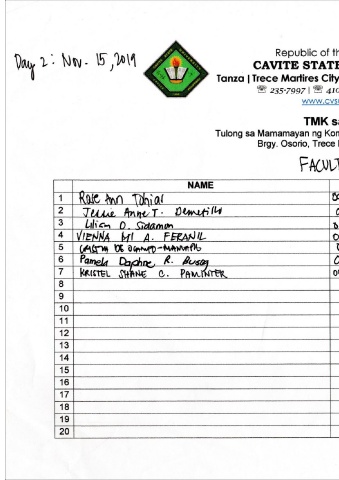 Day 2: Nov. 15, 2019
Republic of th
CAVITE STATE
Tanza | Trece Martires City
☏ 235-7997 | ☏ 410
www.cvs
TMK sa
Tulong sa Mamamayan ng Kom
Brgy. Osorio, Trece
FACULT
NAME
1 Rose Ann Tohial
2 Jessie Anne T. Demetillo
3 Lilian O. Sidamon
4 VIENNA MI A. FERANIL
5 DE OCAMPO-
6 Pamela Daphne R.
7 KRISTEL SHANE C. PAMINTER
8
9
10
11
12
13
14
15
16
17
18
19
20